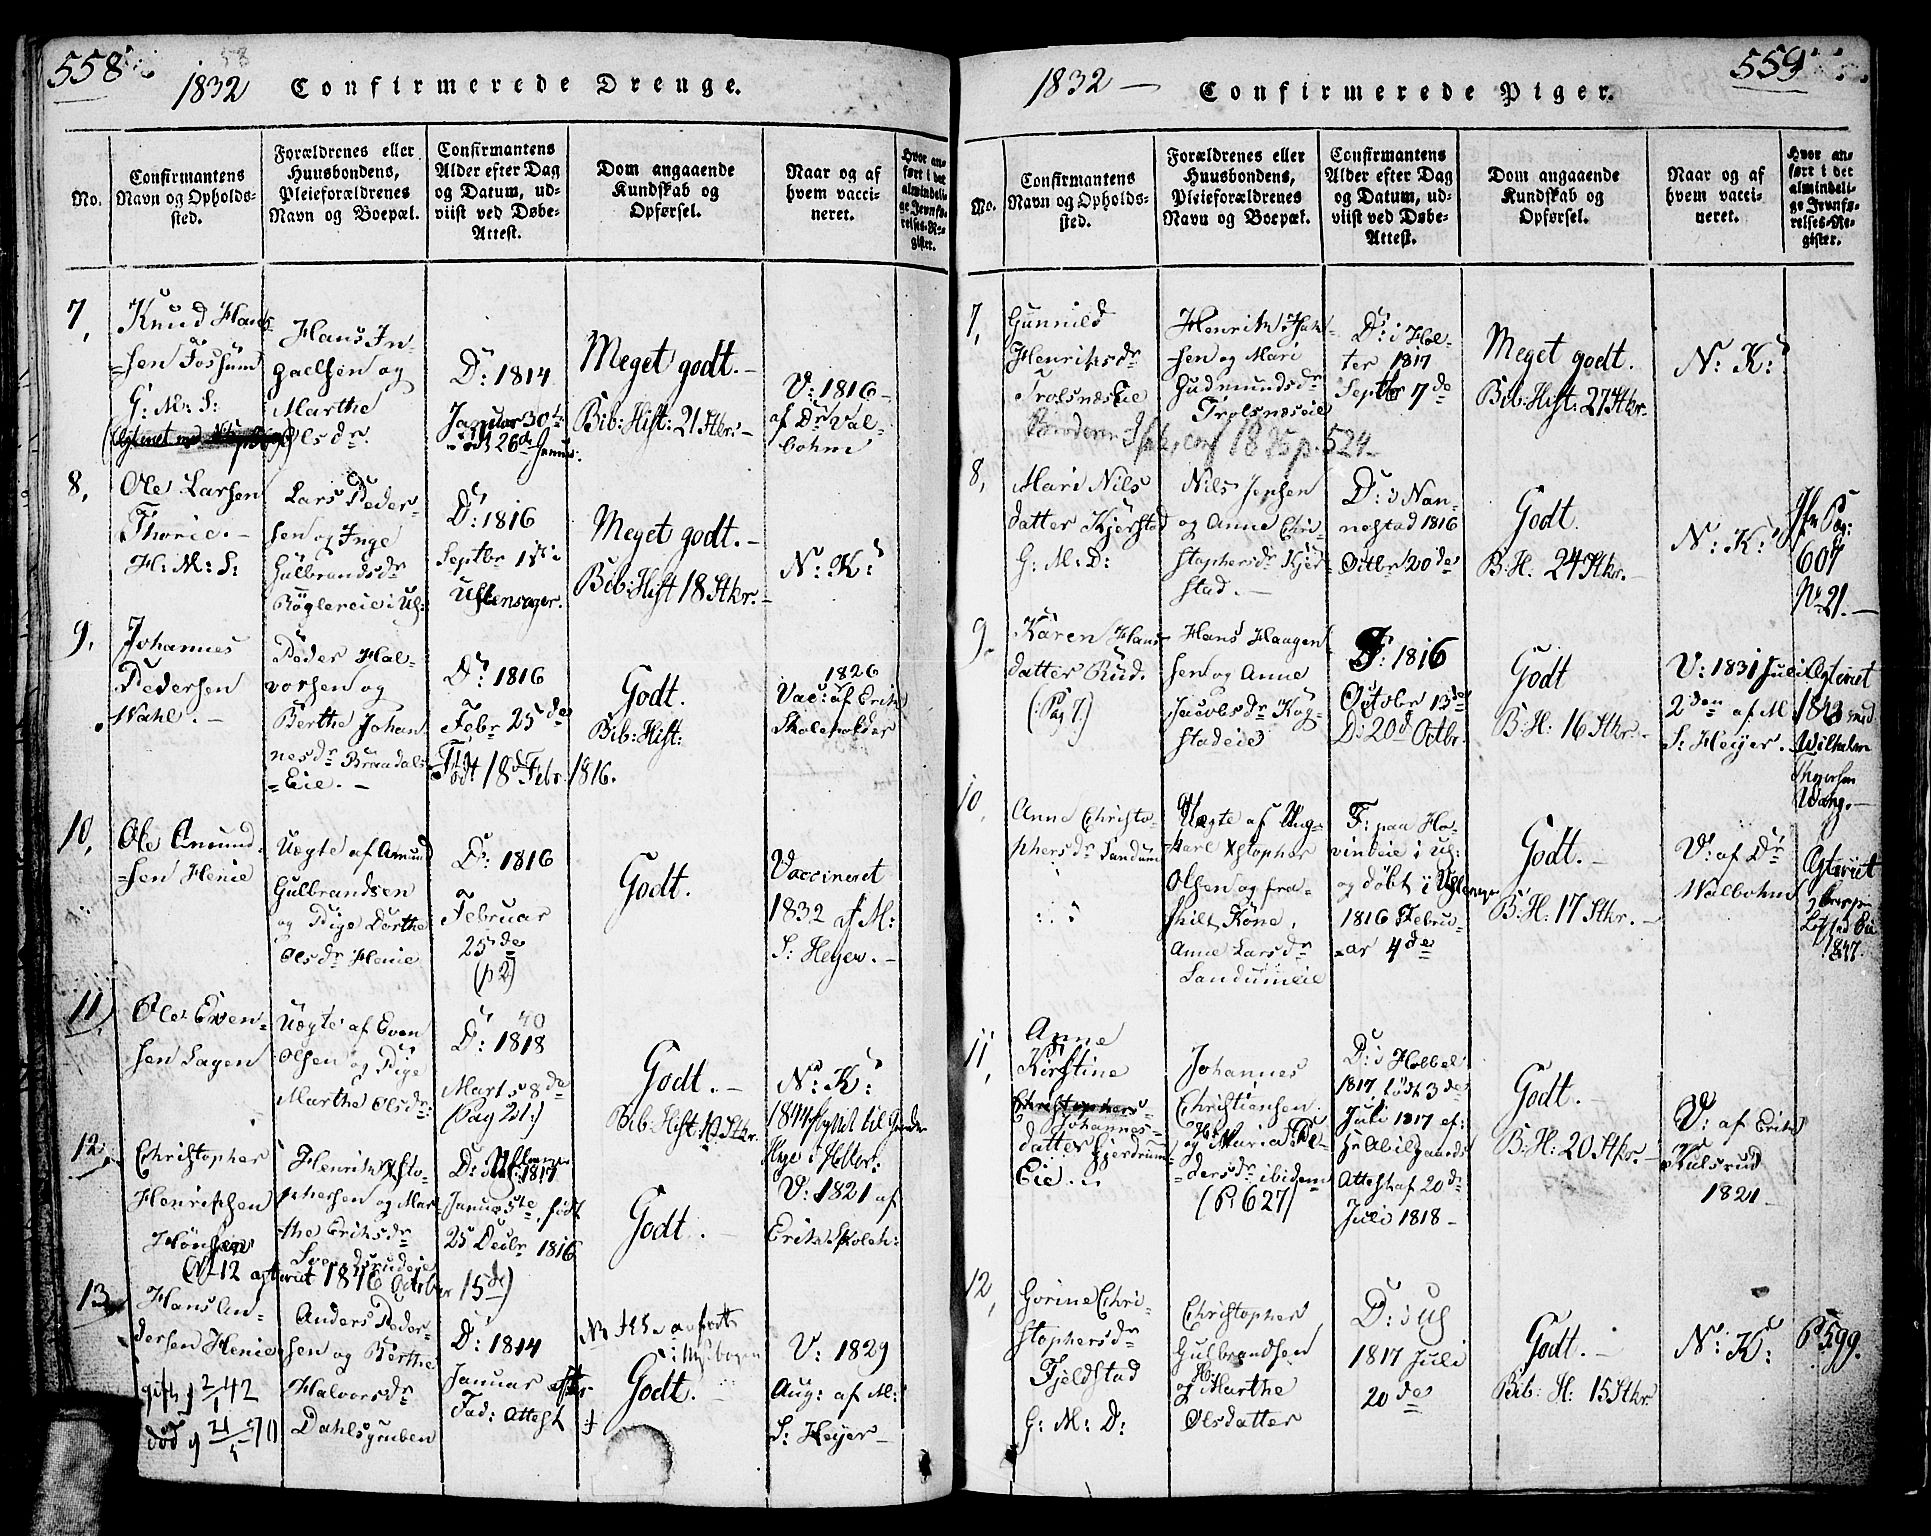 558
1832 Confirmerede Drenge.
No.
Confirmantens
Navn og Opholds-
sted.
Forældrenes eller
Huusbondens,
Pleieforældrenes
Navn og Boepæl.
Confirmantens
Alder efter Dag
og Datum, ud-
viist ved Døbe-
Attest.
Dom angaaende
Kundskab og
Opførsel.
Naar og af
hvem vacci-
neret.
Hvor an-
ført i det
almindeli-
ge Jevnfø-
relses-Re-
gister.
7,
Knud Han-
sen Fossum
G: M: S:
Hans In-
gaelsen og
Marthe
Olsdr.
D: 1814
Januar 30te
født 26d Janu:
Meget godt.-
Bib: Hist: 21 Stkr:-
V: 1816-
af Dr Wal-
bohm
8,
Ole Larsen
Thorie.-
H: M: S:
Lars Peder-
sen og Inge
Gulbrandsdr
Røglereie i Ul-
D: 1816
Septbr 1ste
Ullensager.
Meget godt.-
Bib: Hist 18 Stkr.-
N: K:
9,
Johannes
Pedersen
Wahl.-
Peder Hal-
vorsen og
Berthe Johan
nesdr Brandals-
Eie.-
D: 1816
Febr 25de
Født 18d Febr. 1816.
Godt.
Bib: Hist:
1826
Vac: af Erik
Skoleholder
10,
Ole Amund-
sen Henie
Uægte af Amund
Gulbrandsen
og Pige Dorthe
Olsdr Henie
D: 1816
Februar
25de
(p 2)
Godt.
Vaccineret
1832 af M:
S: Heyer.-
11,
Ole Even-
sen Sagen
Uægte af Even
Olsen og Pige
Marthe Olsdr:
40
D: 1818
Marts 8de
(Pag 21:)
Godt.-
Bib: Hist 10 Stkr.
N: K:
1844 flyttet til
Hage i
12,
Christopher
Henriksen
Hønsen
Henrik Xsto-
phersen og Mar-
the Eriksdr
Svensrudeie
D: i
1817
Januar 5te, født
25 Decbr 1816
Godt.-
V: 1821 af
Erik Skoleh:
(No 12 1816 October 15de)
13
Hans An-
dersen Henie
gift 2/1 42
død 21/5 70
Anders Peder-
sen og Berthe
Halvorsdr
Dahlsgruben
D: 1814
Januar
Fad: Attest
Godt.
V: 1829
Aug: af M:
S: Heyer-
559
1832- Confirmerede Piger.
No.
Confirmantens
Navn og Opholds-
sted.
Forældrenes eller
Huusbondens,
Pleieforældrenes
Navn og Boepæl.
Confirmantens
Alder efter Dag
og Datum, ud-
viist ved Døbe-
Attest.
Dom angaaende
Kundskab og
Opførsel.
Naar og af
hvem vacci-
neret.
Hvor an-
ført i det
almindeli-
ge Jevnfø-
relses-Re-
gister.
7,
Gunnild
Henriksdr
Trolsnæseie
Henrik Han-
sen og Mari
Gudmundsdr
Trolsnæseie
D: i Hol-
ter 1817
Septbr 7de
Meget godt.
Bib: Hist: 27 Stkr.
N: K:
Broderen conf 1835 p. 524
8,
Mari Nils
datter Kjerstad
G: M: D:
Nils Jensen
og Anne Chri-
stophersdr Kjer-
stad.-
D: i Nan-
nestad 1816
Octbr 20de
Godt.
B: H. 24 Stkr.-
N: K:
Jfr Pag:
607
No 21.-
9.
Karen Hans
datter Rud.
(: Pag 7.)
Hans Haagen
sen og Anne
Jacobsdr Kog-
stadeie
F: 1816
October 13de
D: 20d Octbr.
Godt
B: H: 16 Stkr.-
V: 1831 Juli
2den af M:
S: Heyer.
Ægteviet
1843 med
Wilhelm
Wang.-
10,
Anne Christo-
phersdr Sandum
Uægte af Ung-
karl Xstopher
Olsen og fra-
skilt Kone,
Anne Larsdr
Sandumeie
F: paa Ho-
vineie i Ul:
og døbt i Ullensager
1816 Febru-
ar 4de
Godt.-
B: H: 17 Stkr.-
V: af Dr
Walbohm
Ægteviet
1847.
11,
Anne
Kirstine
Johannes-
datter Gjerdrum
Eie.
Johannes
Christiensen
og Maria Pe-
dersdr ibidem
(P. 627)
D: i Hobbel
1817, født 3de
Juli 1817 ef:
Hr Abilgaards
Attest af 20de
Juli 1818-
Godt.-
B: H: 20 Stkr.-
V: af Erik
Kulsrud
1821-
12,
Gorine Chri-
stophersdr
Fjeldstad
G: M: D:
Christopher
Gulbrandsen
og Marthe
Olsdatter
D: i Ull
1817 Juli
20de
Godt.-
Bib: H: 15 Stkr.
N: K:
P 599.